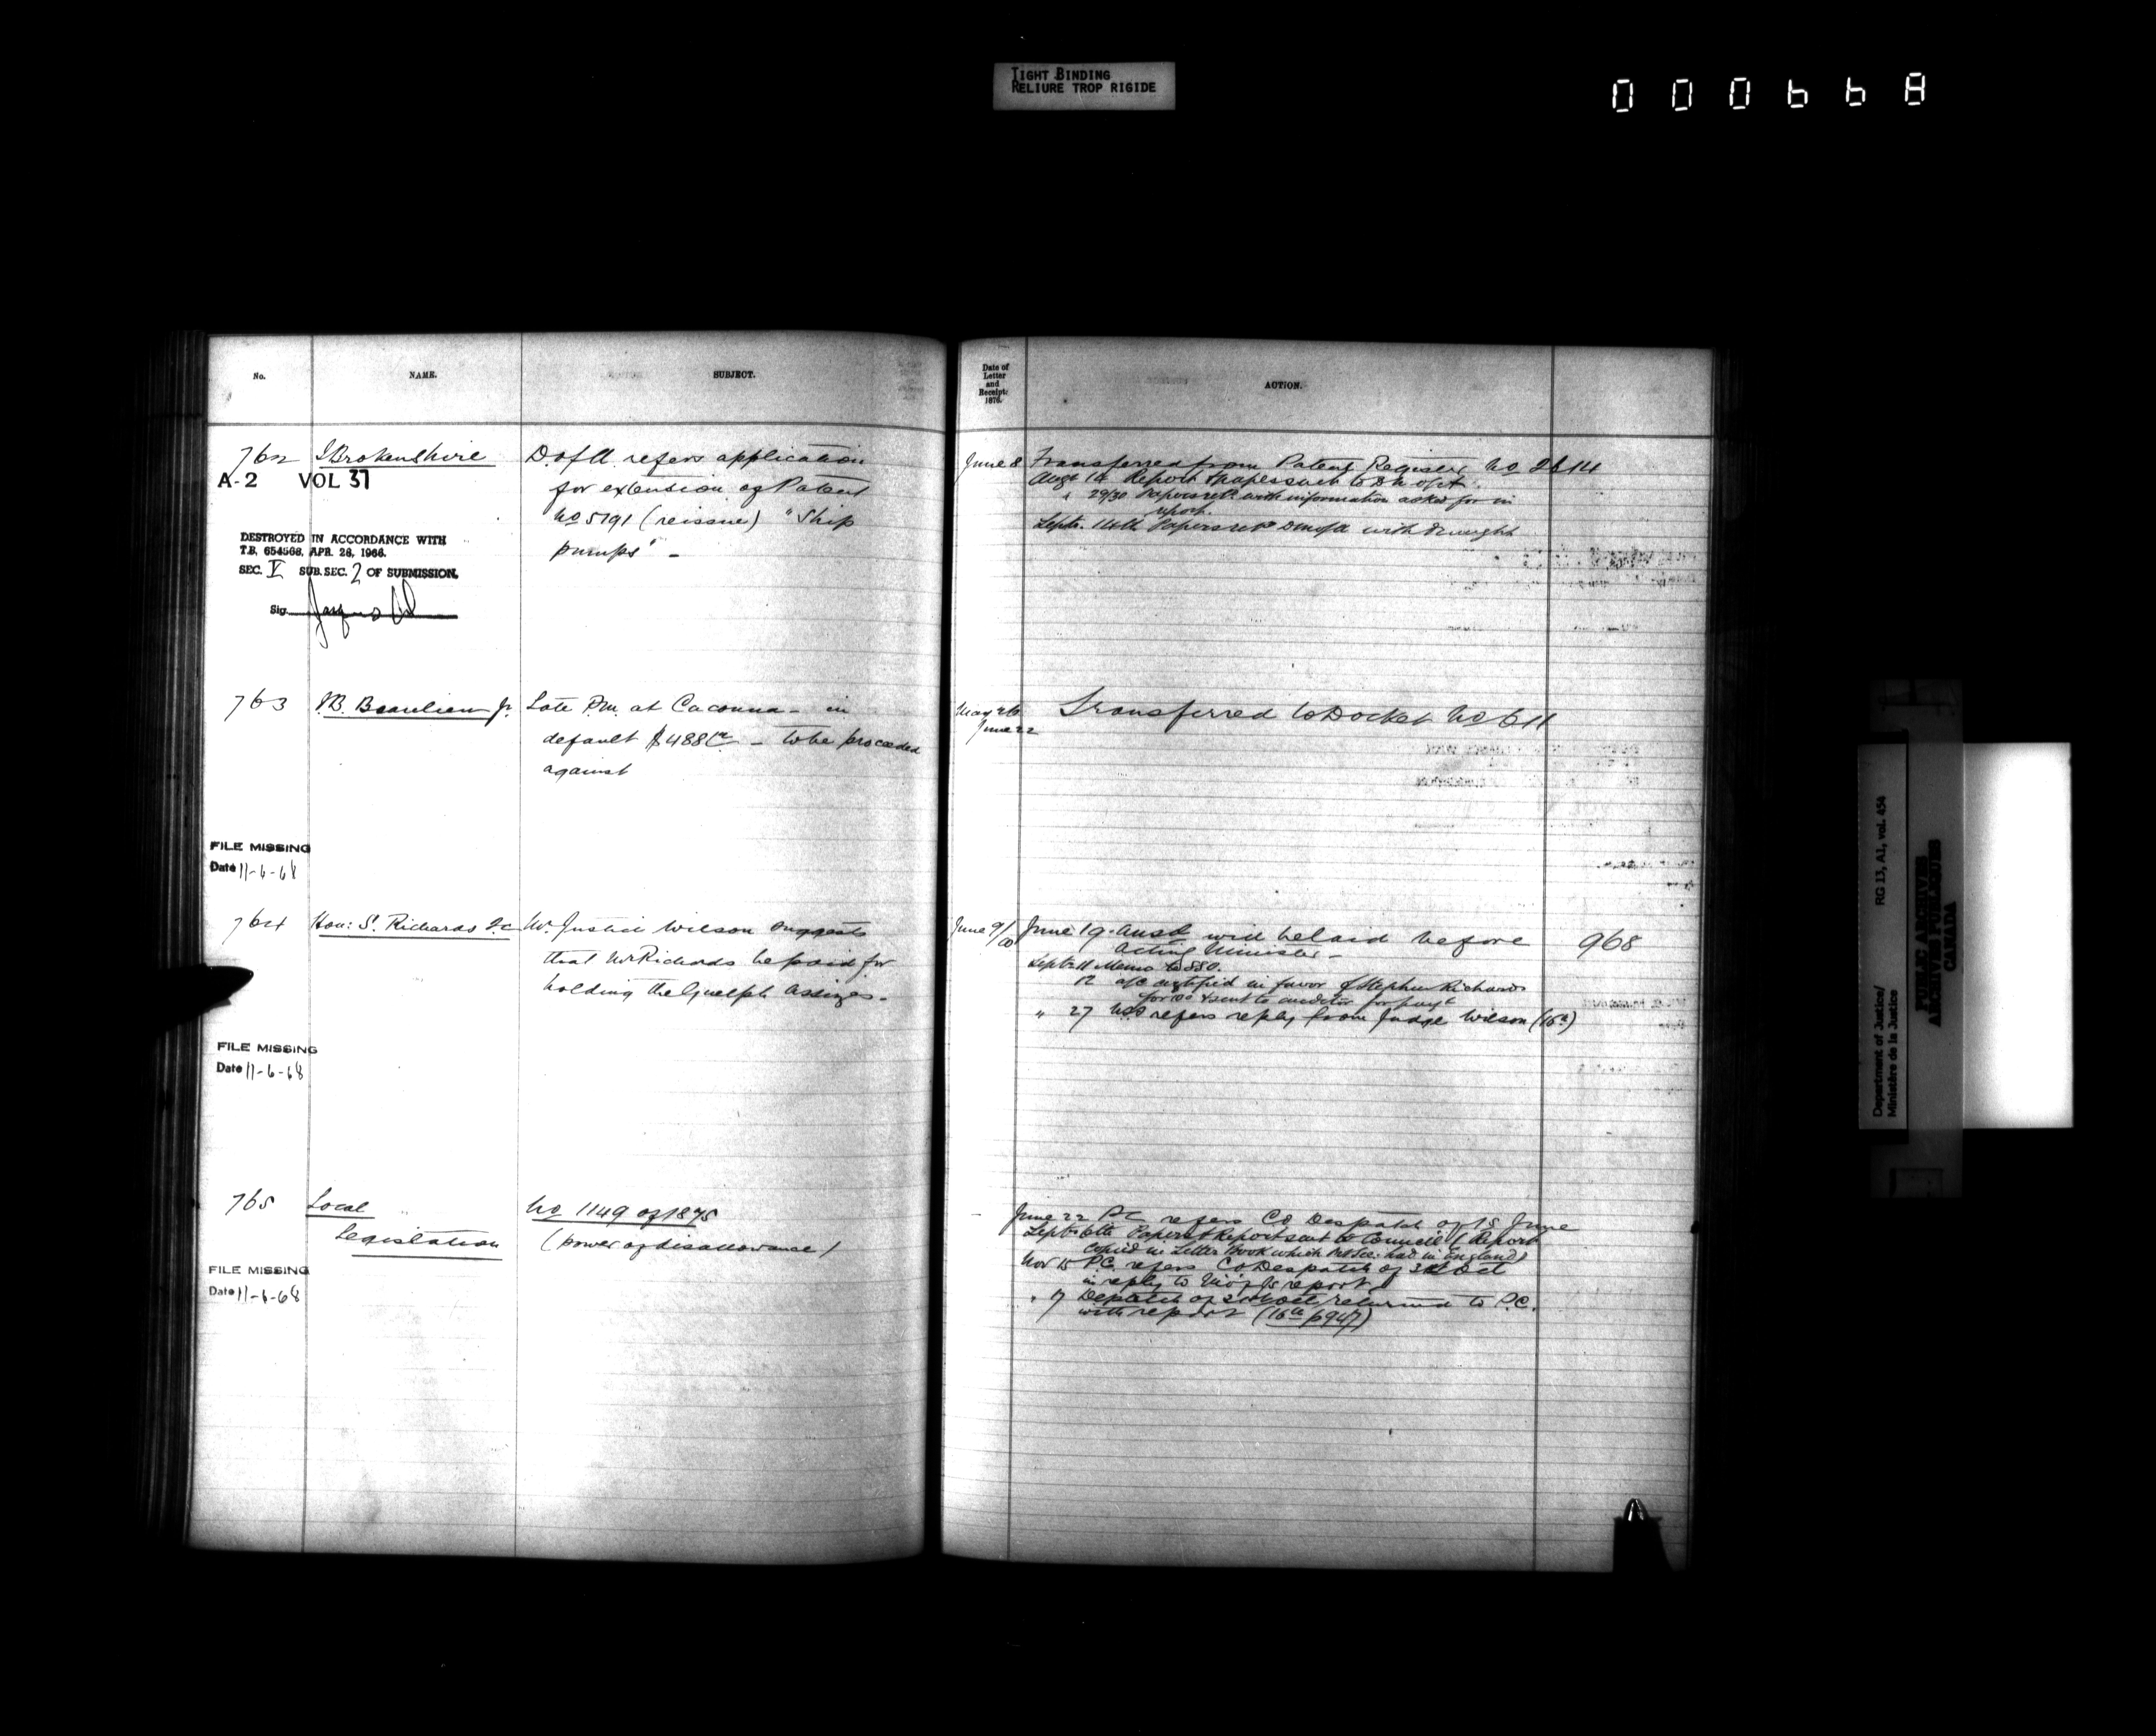 TIGHT BINDING
RELIURE TROP RIGIDE
000668
No.
NAME.
SUBJECT.
762
Brokenshire
D. of A. refers application
for extension of Patent
No 5191 (reissue) "Ship
pumps" -
A-2 VOL 37
DESTROYED IN ACCORDANCE WITH
T.B. 654568, APR. 28, 1966.
SEC. V SUB. SEC. 2 OF SUBMISSION.
Sig.
763
Beaulieu Jr.
Late P.M. at Cacouna - in
default $488 - to be proceeded
against
FILE MISSING
Date 11-6-68
764
Hon: S. Richards Q.C.
Mr. Justice Wilson suggests
that Mr Richards be paid for
holding the Guelph Assizes -
FILE MISSING
Date 11-6-68
765
Local
Legislation
No 1149 of 1875
(power of disallowance)
FILE MISSING
Date 11-6-68
Date of
Letter
and
Receipt:
1876.
ACTION.
June 8
Transferred from Patent Register No 2614
Augt 14 Report & papers sent to
" 29/30 Papers retd with information asked for in
report.
Septr. 14th Papers retd with draught
May 26
June 22
Transferred to Docket No 611
June 9/10
June 19. Ansd will be laid before
Acting Minister -
968
Septr 11 Memo to
12 a/c certified in favor of Stephen Richards
for & sent to auditor for payt
" 27 refers reply from Judge Wilson (16th)
June 22 PC refers CO Despatch of 15 June
Septr 6th Papers & Report sent to Council (Report
copied in Letter Book which had in England)
Nov 15 P.C. refers CO Despatch of 31st Oct
in reply to report
" 17 Despatch of Oct returned to P.C.
with report (16th p947)
Department of Justice/
Ministère de la Justice
RG 13, A1, vol. 454
PUBLIC ARCHIVES
ARCHIVES PUBLIQUES
CANADA